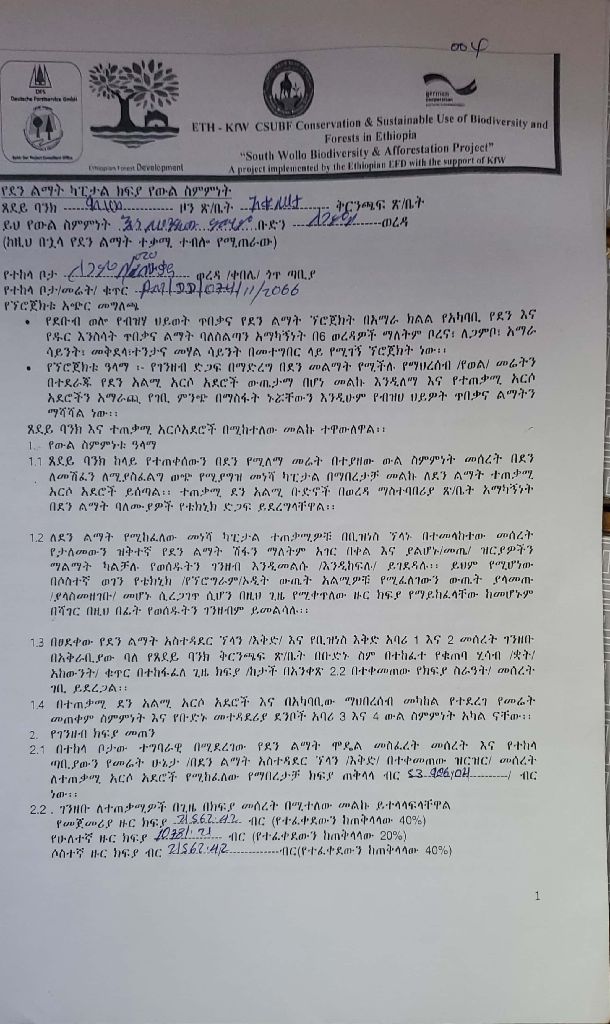 004
DFS
Deutsche Forstservice GmbH
Ethiopian Forest Development
german
cooperation
ETH - KfW CSUBF Conservation & Sustainable Use of Biodiversity and
Forests in Ethiopia
“South Wollo Biodiversity & Afforestation Project”
A project implemented by the Ethiopian EFD with the support of KfW
የደን ልማት ካፒታል ክፍያ የውል ስምምነት
ጸደይ ባንክ ዞን ጽ/ቤት ቅርንጫፍ ጽ/ቤት
ይህ የውል ስምምነት ቡድን ወረዳ
(ከዚህ በኋላ የደን ልማት ተቃሚ ተብሎ የሚጠራው)
020
የተከላ ቦታ ወረዳ /ቀበሌ/ ጎጥ ጣቢያ
የተከላ ቦታ/መሬት/ ቁጥር AM/DD/074/11/2066
የፕሮጀክቱ አጭር መግለጫ
• የደቡብ ወሎ የብዝሃ ህይወት ጥበቃና የደን ልማት ፕሮጀክት በአማራ ክልል የአካባቢ የደን እና
የዱር እንስሳት ጥበቃና ልማት ባለስልጣን አማካኝነት በ6 ወረዳዎች ማለትም ቦረና፣ ሌጋምቦ፣ አማራ
ሳይንት፣ መቅደላ፣ተንታና መሃል ሳይንት በመተግበር ላይ የሚገኝ ፕሮጀክት ነው፡፡
• የፕሮጀክቱ ዓላማ ፡- የገንዘብ ድጋፍ በማድረግ በደን መልማት የሚችሉ የማህረሰብ /የወል/ መሬትን
በተደራጁ የደን አልሚ አርሶ አደሮች ውጤታማ በሆነ መልኩ እንዲለማ እና የተጠቃሚ አርሶ
አደሮችን አማራጪ የገቢ ምንጭ በማስፋት ኑሯቸውን እንዲሁም የብዝሀ ህይዎት ጥበቃና ልማትን
ማሻሻል ነው፡፡
ጸደይ ባንክ እና ተጠቃሚ አርሶአደሮች በሚከተለው መልኩ ተዋውለዋል፡፡
1. የውል ስምምነቱ ዓላማ
1.1 ጸደይ ባንክ ከላይ የተጠቀሰውን በደን የሚለማ መሬት በተያዘው ውል ስምምነት መሰረት በደን
ለመሸፈን ለሚያስፈልግ ወጭ የሚያግዝ መነሻ ካፒታል በማበረታቻ መልኩ ለደን ልማት ተጠቃሚ
አርሶ አደሮች ይሰጣል፡፡ ተጠቃሚ ደን አልሚ ቡድኖች በወረዳ ማስተባበሪያ ጽ/ቤት አማካኝነት
በደን ልማት ባለሙያዎች የቴክኒክ ድጋፍ ይደረግላቸዋል፡፡
1.2 ለደን ልማት የሚከፈለው መነሻ ካፒታል ተጠቃሚዎቹ በቢዝነስ ፕላኑ በተመላከተው መሰረት
የታለመውን ዝቅተኛ የደን ልማት ሽፋን ማለትም አገር በቀል እና ያልሆኑ/መጤ/ ዝርያዎችን
ማልማት ካልቻሉ የወሰዱትን ገንዘብ እንዲመልሱ /እንዲከፍሉ/ ይገደዳሉ፡፡ ይህም የሚሆነው
በሶስተኛ ወገን የቴክኒክ /የፕሮግራም/ኦዲት ውጤት አልሚዎቹ የሚፈለገውን ውጤት ያላመጡ
/ያላስመዘገቡ/ መሆኑ ሲረጋገጥ ሲሆን በዚህ ጊዜ የሚቀጥለው ዙር ክፍያ የማይከፈላቸው ከመሆኑም
በሻገር በዚህ በፊት የወሰዱትን ገንዘብም ይመልሳሉ፡፡
1.3 በፀደቀው የደን ልማት አስተዳደር ፕላን /እቅድ/ እና የቢዝነስ እቅድ አባሪ 1 እና 2 መሰረት ገንዘቡ
በአቅራቢያው ባለ የጸደይ ባንክ ቅርንጫፍ ጽ/ቤት በቡድኑ ስም በተከፈተ የቁጠባ ሂሳብ /ቋት/
አከውንት/ ቁጥር በተከፋፈለ ጊዜ ክፍያ /ከታች በአንቀጽ 2.2 በተቀመጠው የክፍያ ስራዓት/ መሰረት
ገቢ ይደረጋል፡፡
1.4 በተጠቃሚ ደን አልሚ አርሶ አደሮች እና በአካባቢው ማህበረሰብ መካከል የተደረገ የመሬት
መጠቀም ስምምነት እና የቡድኑ መተዳደሪያ ደንቦች አባሪ 3 እና 4 ውል ስምምነት አካል ናቸው፡፡
2. የገንዘብ ክፍያ መጠን
2.1 በተከላ ቦታው ተግባራዊ በሚደረገው የደን ልማት ሞዴል መስፈረት መሰረት እና የተከላ
ጣቢያውን የመሬት ሁኔታ /በደን ልማት አስተዳደር ፕላን /እቅድ/ በተቀመጠው ዝርዝር/ መሰረት
ለተጠቃሚ አርሶ አደሮች የሚከፈለው የማበረታቻ ክፍያ ጠቅላላ ብር 53,906.04 / ብር
ነው፡፡
2.2 . ገንዘቡ ለተጠቃሚዎች በጊዜ በክፍያ መሰረት በሚተለው መልኩ ይተላለፍላቸዋል
የመጀመሪያ ዙር ክፍያ 21562.42 ብር (የተፈቀደውን ከጠቅላላው 40%)
የሁለተኛ ዙር ክፍያ 10781.21 ብር (የተፈቀደውን ከጠቅላላው 20%)
ሶስተኛ ዙር ክፍያ ብር 21562.42 ብር(የተፈቀደውን ከጠቅላላው 40%)
1